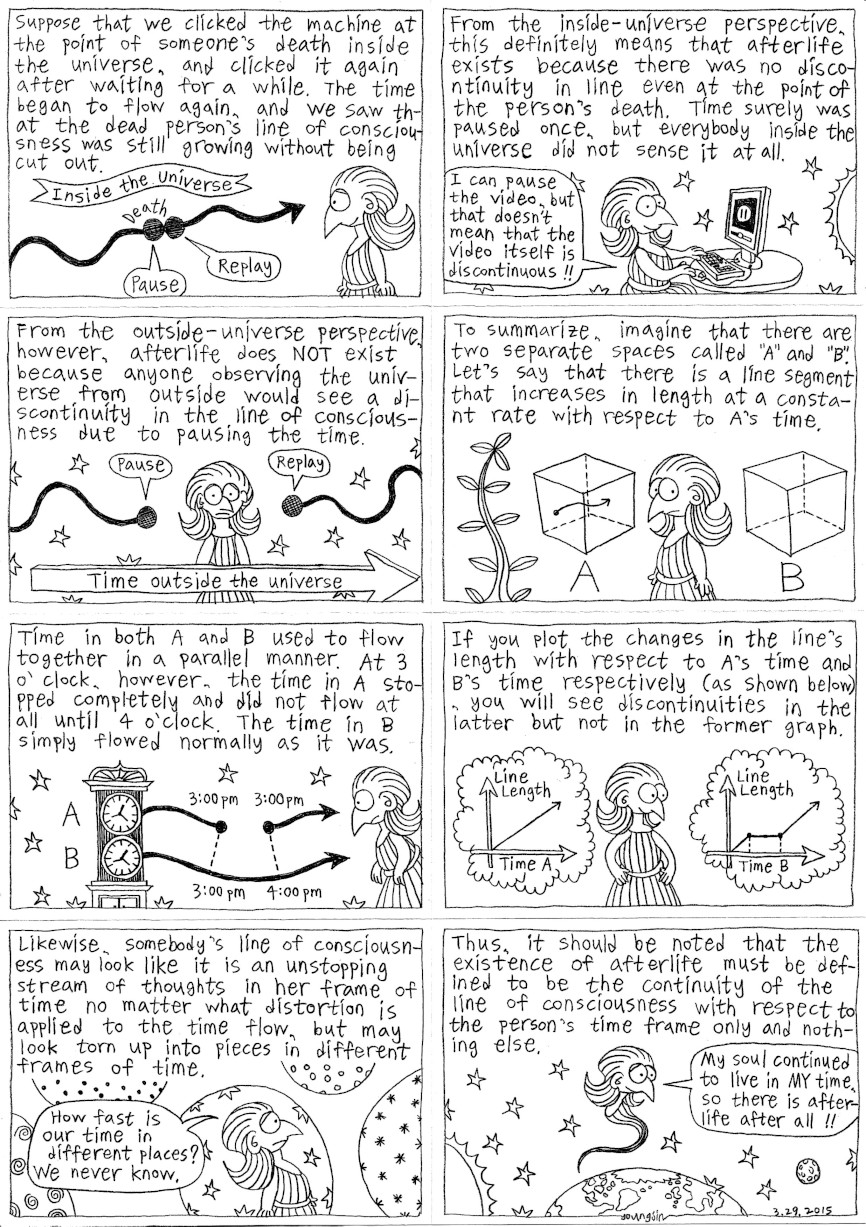 Suppose that we clicked the machine at
the point of someone's death inside
the universe, and clicked it again
after waiting for a while. The time
began to flow again, and we saw th-
at the dead person's line of conscious-
sness was still growing without being
cut out.
Inside the universe
Death
Pause
Replay
From the inside-universe perspective,
this definitely means that afterlife
exists because there was no disco-
ntinuity in line even at the point of
the person's death. Time surely was
paused once, but everybody inside the
universe did not sense it at all.
I can pause
the video, but
that doesn't
mean that the
video itself is
discontinuous!!
From the outside-universe perspective,
however, afterlife does NOT exist
because anyone observing the univ-
erse from outside would see a di-
scontinuity in the line of conscious-
ness due to pausing the time.
Pause
Replay
Time outside the universe
To summarize, imagine that there are
two separate spaces called "A" and "B".
Let's say that there is a line segment
that increases in length at a consta-
nt rate with respect to A's time.
A
B
Time in both A and B used to flow
together in a parallel manner. At 3
o'clock, however, the time in A sto-
pped completely and did not flow at
all until 4 o'clock. The time in B
simply flowed normally as it was.
A
3:00 pm 3:00 pm
B
3:00 pm 4:00 pm
If you plot the changes in the line's
length with respect to A's time and
B's time respectively (as shown below)
, you will see discontinuities in the
latter but not in the former graph.
Line
Length
Time A
Line
Length
Time B
Likewise, somebody's line of consciousn-
ess may look like it is an unstopping
stream of thoughts in her frame of
time no matter what distortion is
applied to the time flow, but may
look torn up into pieces in different
frames of time.
How fast is
our time in
different places?
We never know.
Thus, it should be noted that the
existence of afterlife must be def-
ined to be the continuity of the
line of consciousness with respect to
the person's time frame only and noth-
ing else.
My soul continued
to live in MY time,
so there is after-
life after all!!
youngjin
3.29.2015